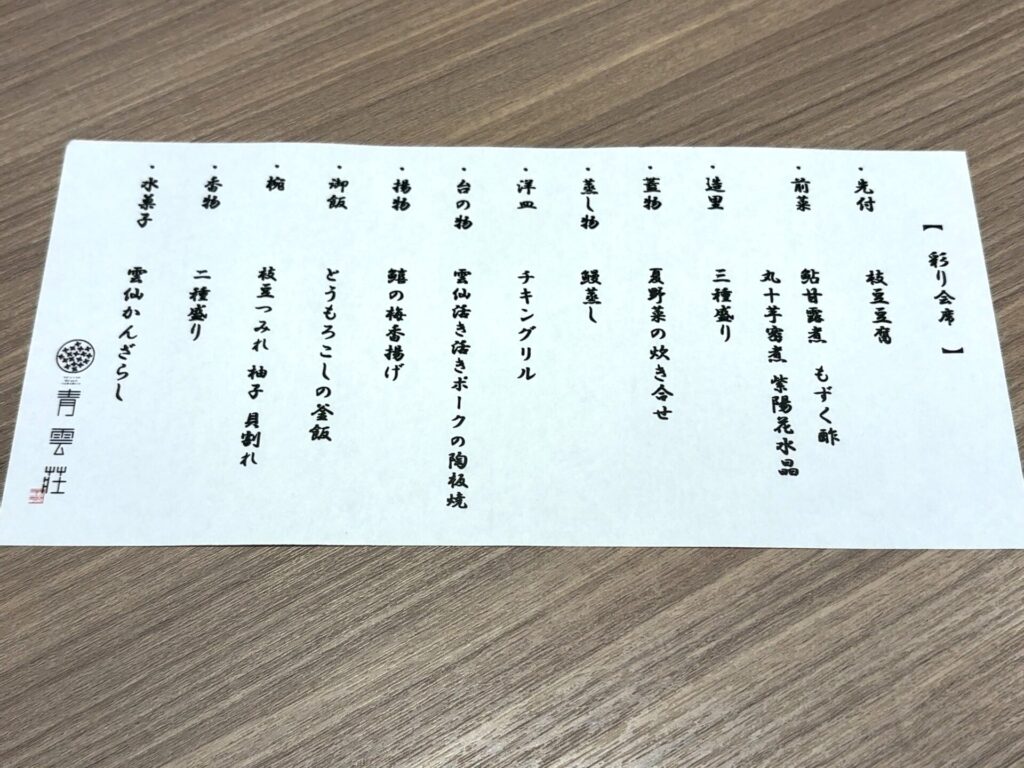 【 彩り会席 】
・先付 枝豆豆腐
・前菜 鮎甘露煮 もずく酢
丸十芋蜜煮 紫陽花水晶
・造里 三種盛り
・蓋物 夏野菜の炊き合せ
・蒸し物 鰻蒸し
・洋皿 チキングリル
・台の物 雲仙活き活きポークの陶板焼
・揚物 鱚の梅香揚げ
・御飯 とうもろこしの釜飯
・椀 枝豆つみれ 柚子 貝割れ
・香物 二種盛り
・水菓子 雲仙かんざらし
青雲荘